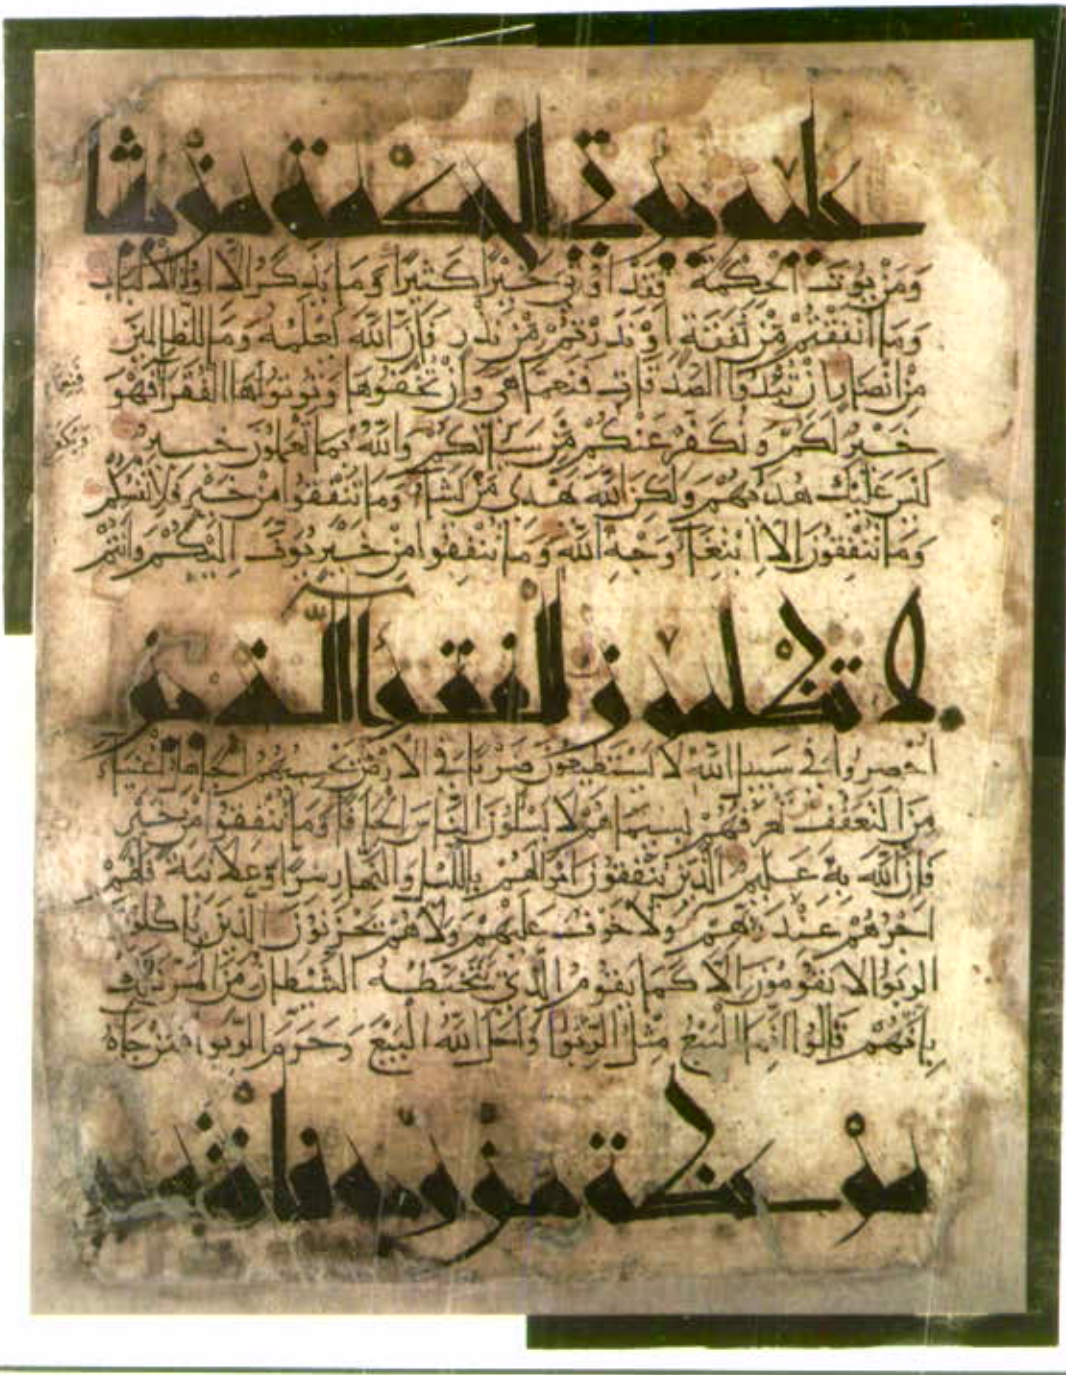 عليم يوتي الحكمة من يشا
وَمَنْ يُوتَ الْحِكْمَةَ فَقَدْ اُوتِيَ خَيْرًا كَثِيرًا وَمَا يَذَّكَّرُ اِلَّا اُولُوا الْاَلْبَابِ
وَمَا اَنْفَقْتُمْ مِنْ نَفَقَةٍ اَوْ نَذَرْتُمْ مِنْ نَذْرٍ فَاِنَّ اللّٰهَ يَعْلَمُهُ وَمَا لِلظَّالِمِينَ
مِنْ اَنْصَارٍ اِنْ تُبْدُوا الصَّدَقَاتِ فَنِعِمَّا هِيَ وَاِنْ تُخْفُوهَا وَتُوتُوهَا الْفُقَرَآ فَهُوَ
خَيْرٌ لَكُمْ وَنُكَفِّرُ عَنْكُمْ مِنْ سَيِّاتِكُمْ وَاللّٰهُ بِمَا تَعْمَلُونَ خَبِيرٌ
لَيْسَ عَلَيْكَ هُدَيهُمْ وَلٰكِنَّ اللّٰهَ يَهْدِي مَنْ يَشَآ وَمَا تُنْفِقُوا مِنْ خَيْرٍ فَلِاَنْفُسِكُمْ
وَمَا تُنْفِقُونَ اِلَّا ابْتِغَآ وَجْهِ اللّٰهِ وَمَا تُنْفِقُوا مِنْ خَيْرٍ يُوَفَّ اِلَيْكُمْ وَاَنْتُمْ
لا تظلمون للفقرآ الذين
اُحْصِرُوا فِي سَبِيلِ اللّٰهِ لَا يَسْتَطِيعُونَ ضَرْبًا فِي الْاَرْضِ يَحْسِبُهُمُ الْجَاهِلُ اَغْنِيَآءَ
مِنَ التَّعَفُّفِ تَعْرِفُهُمْ بِسِيمَاهُمْ لَا يَسْلُونَ النَّاسَ اِلْحَافًا وَمَا تُنْفِقُوا مِنْ خَيْرٍ
فَاِنَّ اللّٰهَ بِهِ عَلِيمٌ الَّذِينَ يُنْفِقُونَ اَمْوَالَهُمْ بِاللَّيْلِ وَالنَّهَارِ سِرًّا وَعَلَانِيَةً فَلَهُمْ
اَجْرُهُمْ عِنْدَ رَبِّهِمْ وَلَا خَوْفٌ عَلَيْهِمْ وَلَا هُمْ يَحْزَنُونَ الَّذِينَ يَاكُلُونَ
الرِّبٰوا لَا يَقُومُونَ اِلَّا كَمَا يَقُومُ الَّذِي يَتَخَبَّطُهُ الشَّيْطَانُ مِنَ الْمَسِّ ذٰلِكَ
بِاَنَّهُمْ قَالُوا اِنَّمَا الْبَيْعُ مِثْلُ الرِّبٰوا وَاَحَلَّ اللّٰهُ الْبَيْعَ وَحَرَّمَ الرِّبٰوا فَمَنْ جَآهُ
موعظة من ربه فانتهى